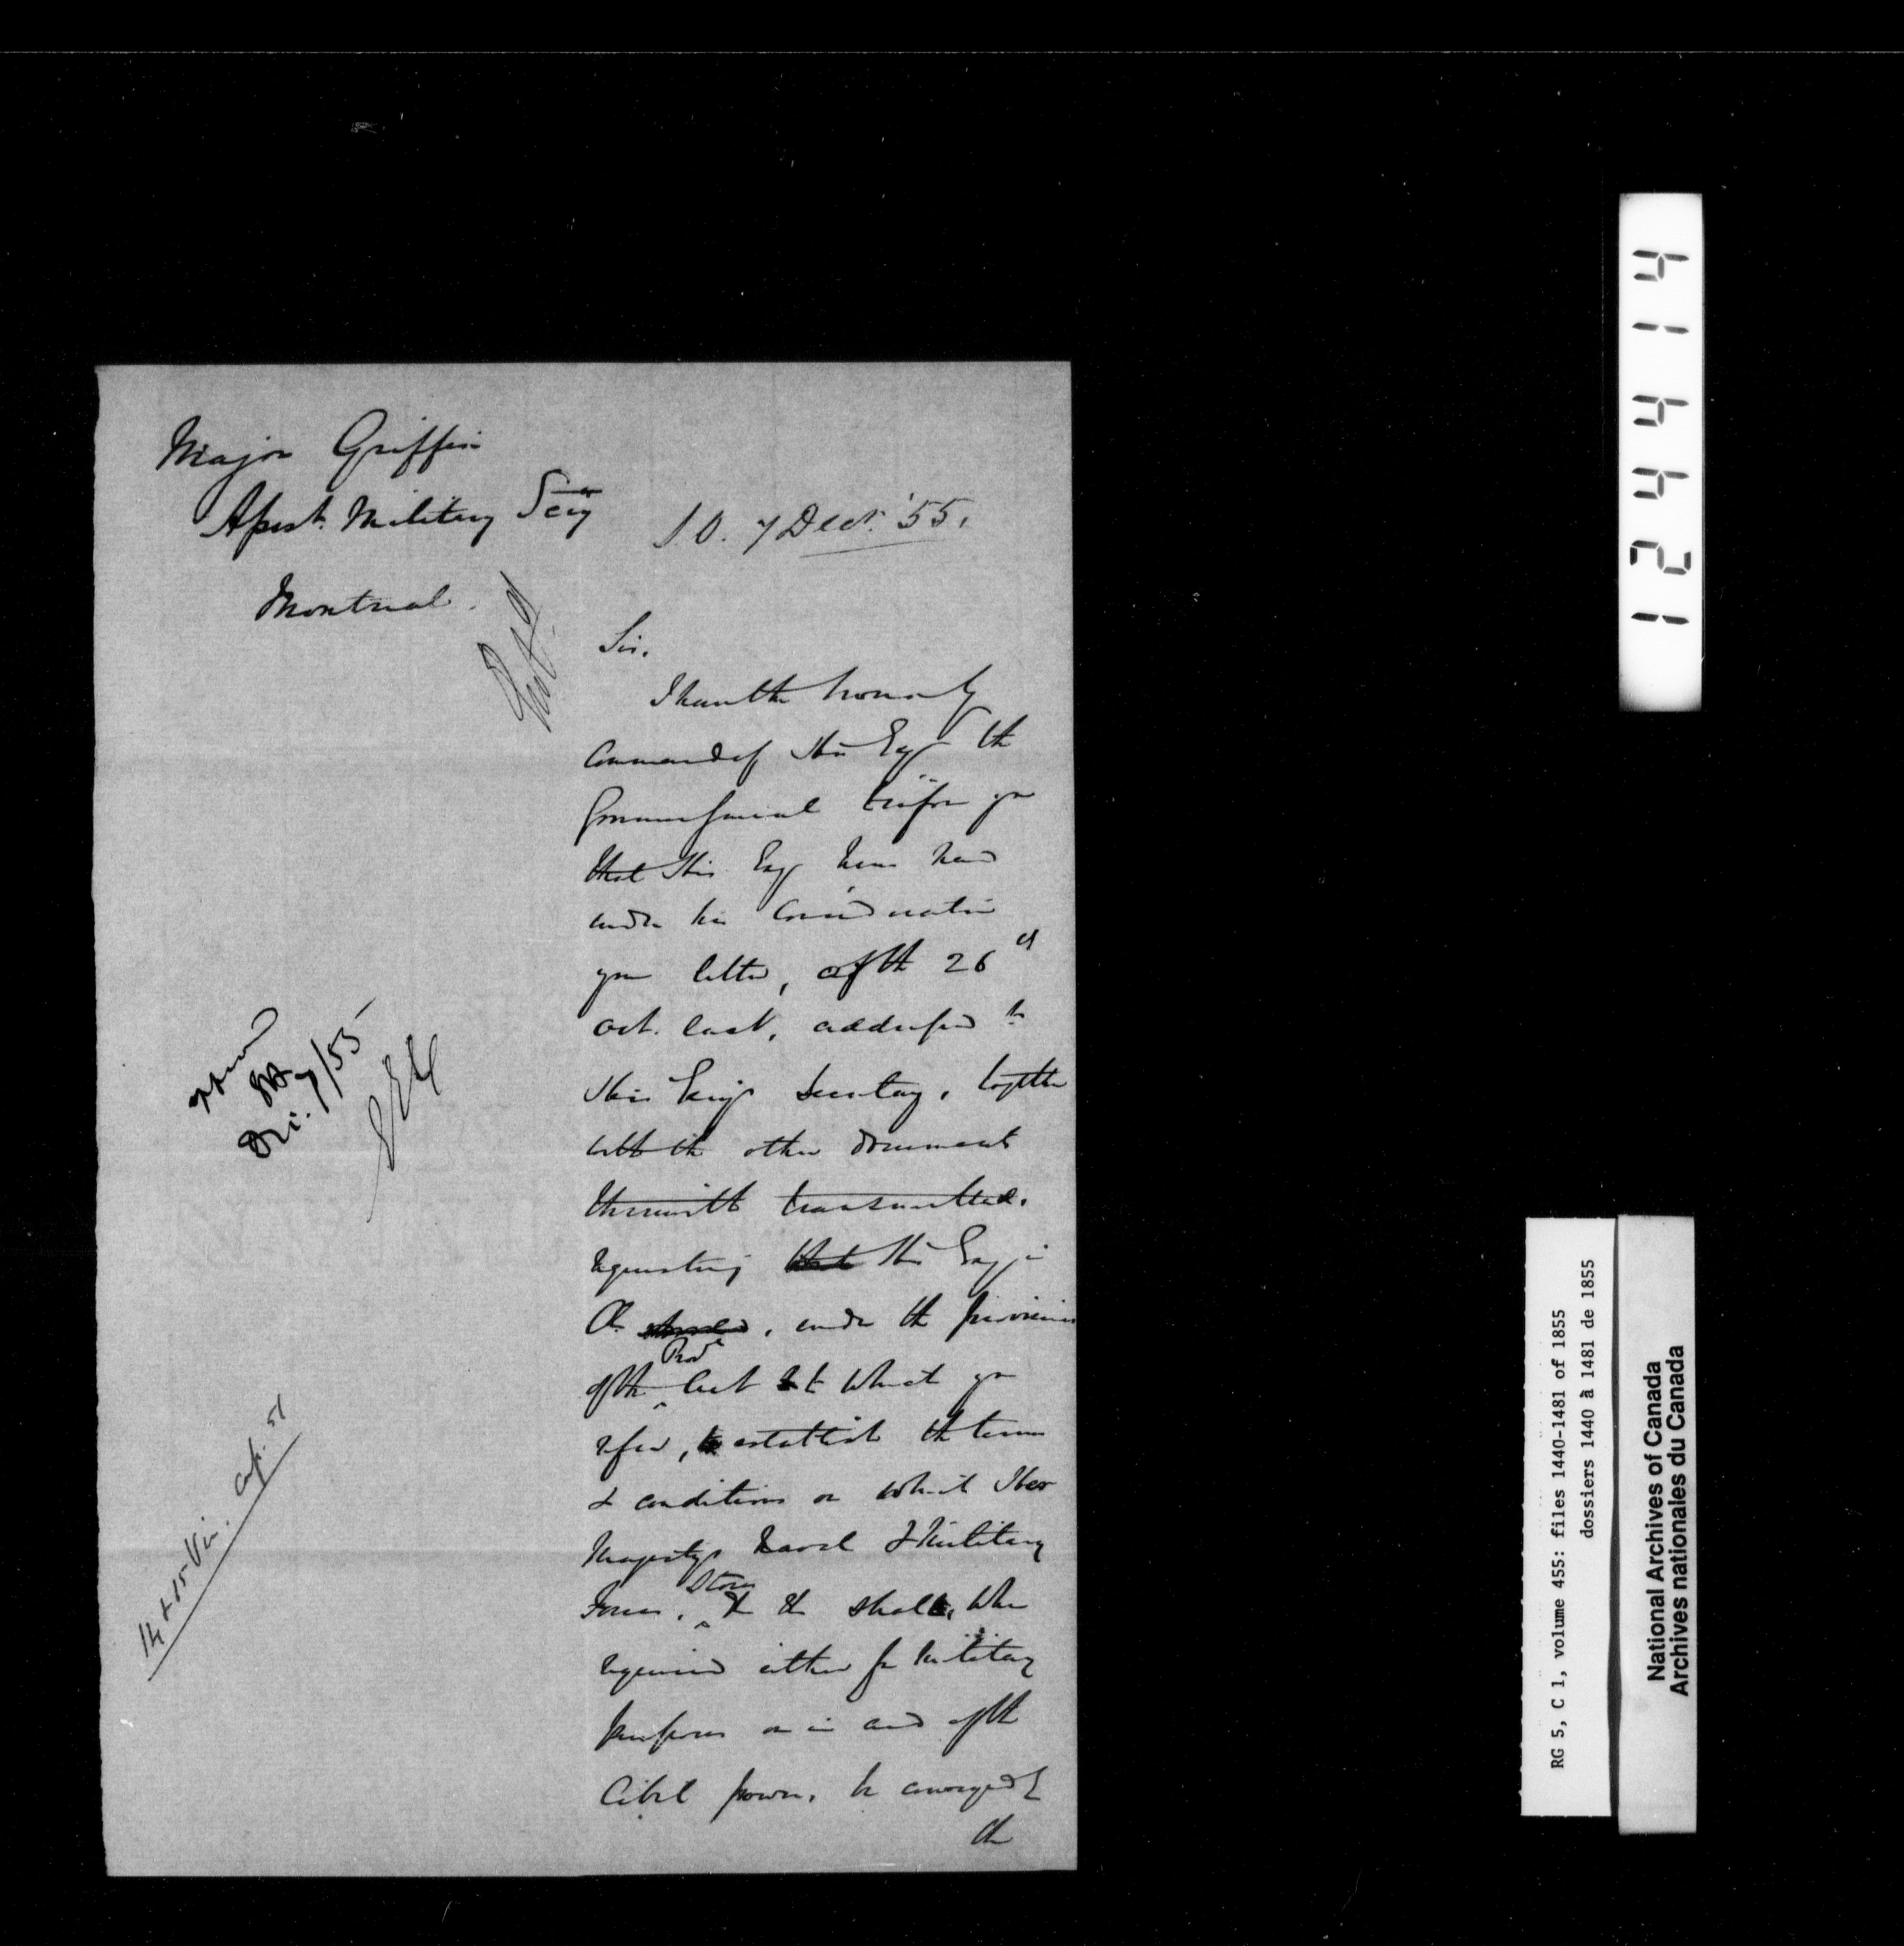 Major Griffin
Assist. Military Secy
Montreal.
S.O. 7 Decr. '55.
Sir.
I have the honor by
Command of His Exy the
Governor General to inform you
that His Exy has had
under his Consideration
your letter, of the 26th
Oct. last, addressed to
His Exys Secretary, together
with the other documents
therewith transmitted.
requesting that His Exy in
Cl. , under the provisions
of the Provl act to which you
refer, to establish the terms
& conditions on which Her
Majestys Naval & Military
Forces, Stores & & shall, when
required either for Military
purposes or in aid of the
Civil power, be conveyed by
the
approved
Dec. 7/55
14 & 15 Vic. Cap. 51
414421
RG 5, C 1, volume 455: files 1440-1481 of 1855
dossiers 1440 à 1481 de 1855
National Archives of Canada
Archives nationales du Canada